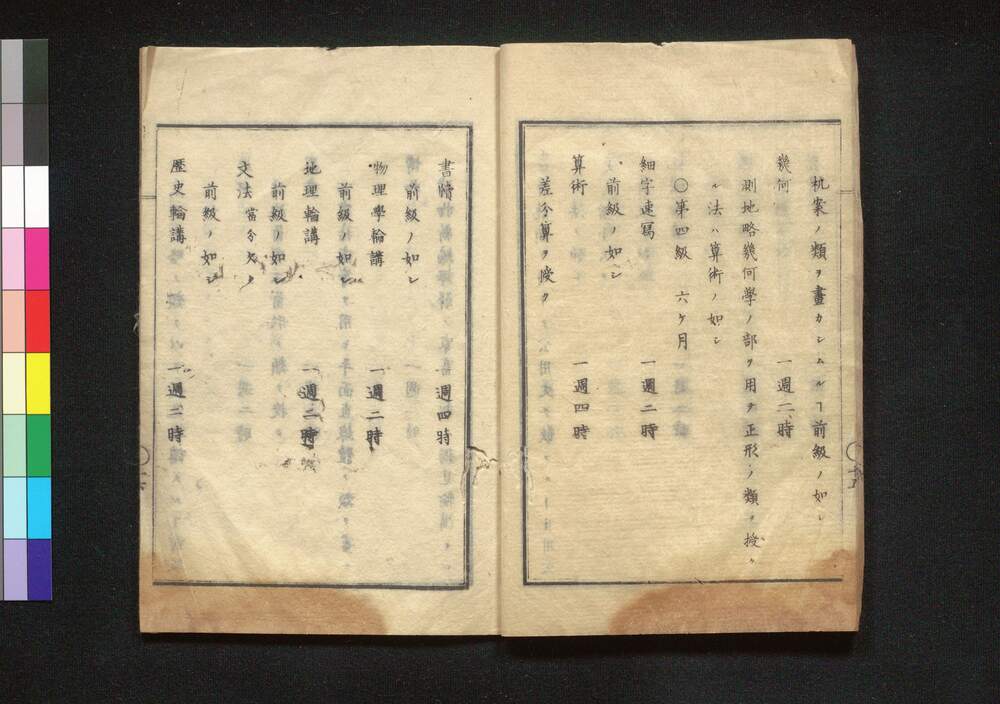 机案ノ類ヲ畫カシムルヿ前級ノ如シ
幾何 一週二時
測地略幾何學ノ部ヲ用テ正形ノ類ヲ授ク
ル法ハ算術ノ如シ
〇第四級 六ケ月
細字速寫 一週二時
前級ノ如シ
算術 一週四時
差分算ヲ授ク
書牘 一週四時
前級ノ如シ
物理學輪講 一週二時
前級ノ如シ
地理輪講 一週二時
前級ノ如シ
文法 當分欠ク
前級ノ如シ
歴史輪講 一週二時